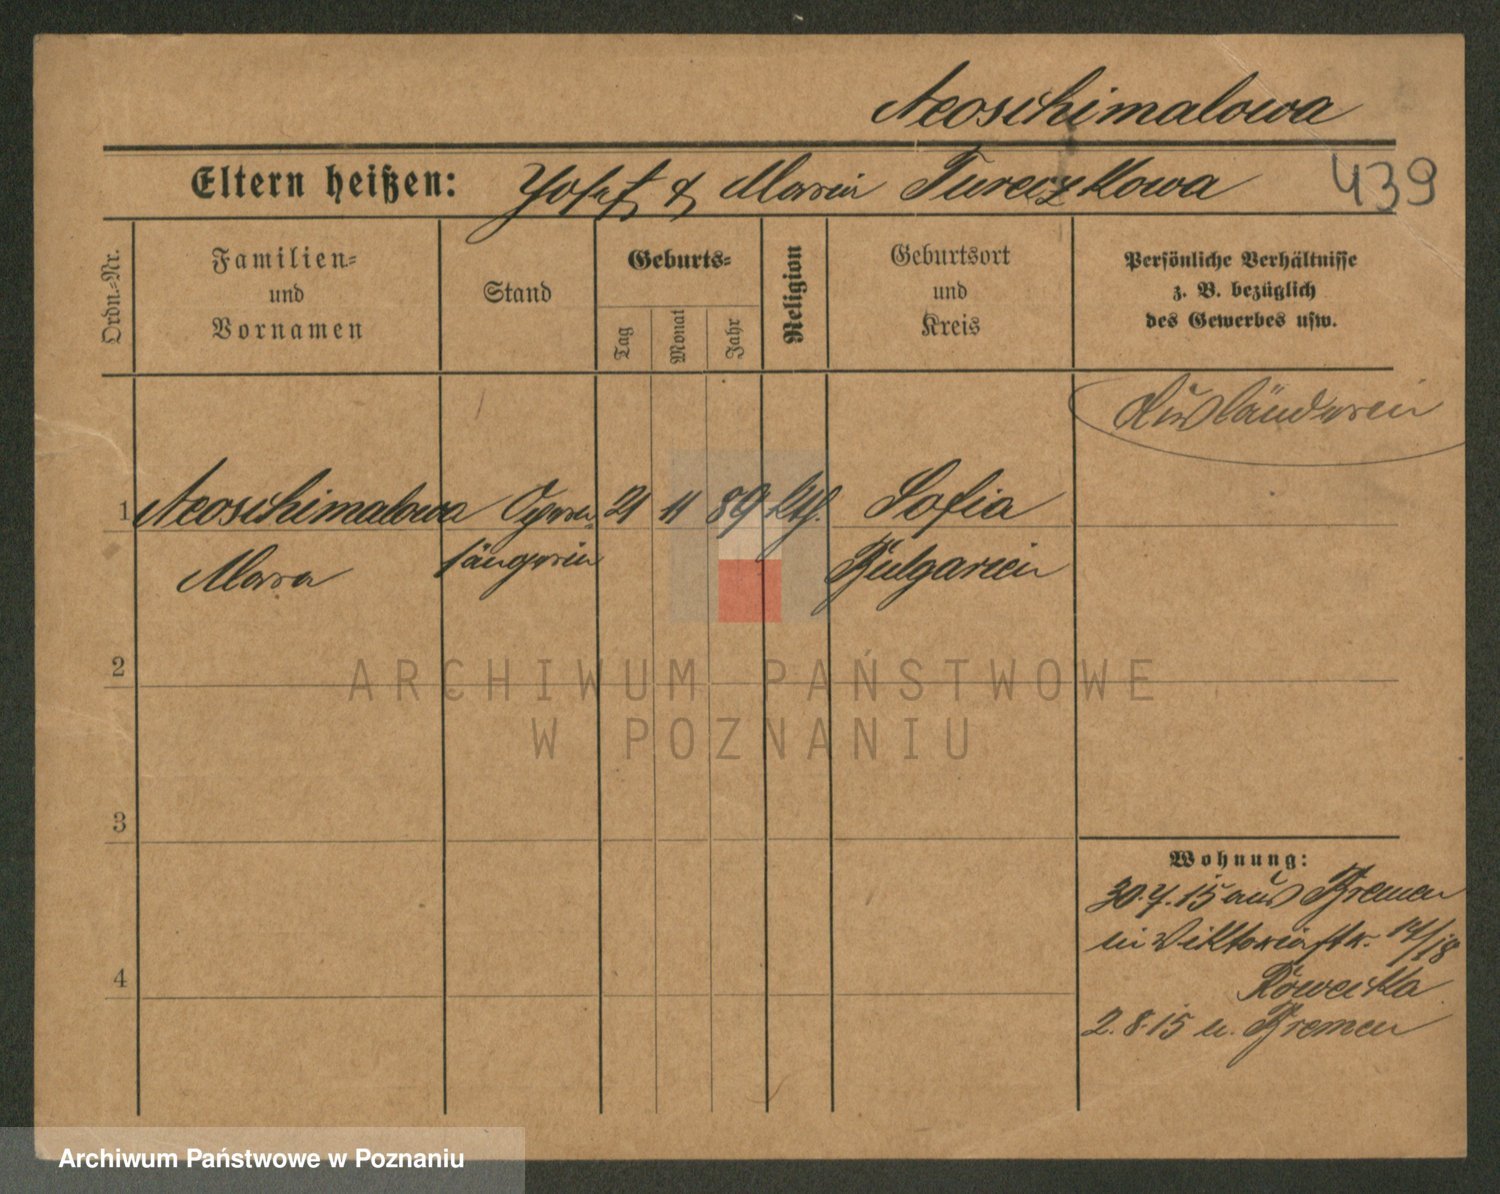 Neoschimalowa
Eltern heißen: Josef & Maria Tureczkowa 439
Ordn.=Nr.
Familien=
und
Vornamen
Stand
Geburts=
Tag
Monat
Jahr
Religion
Geburtsort
und
Kreis
Persönliche Verhältnisse
z. B. bezüglich
des Gewerbes usw.
Ausländerin
1 Neoschimalowa Opern= 21 11 89 kth. Sofia
Mara sängerin Bulgarien
2
ARCHIWUM PAŃSTWOWE
W POZNANIU
3
Wohnung:
30.7.15 aus Bremen
in Viktoriastr. 17/18
4
2.8.15 n. Bremen
Archiwum Państwowe w Poznaniu